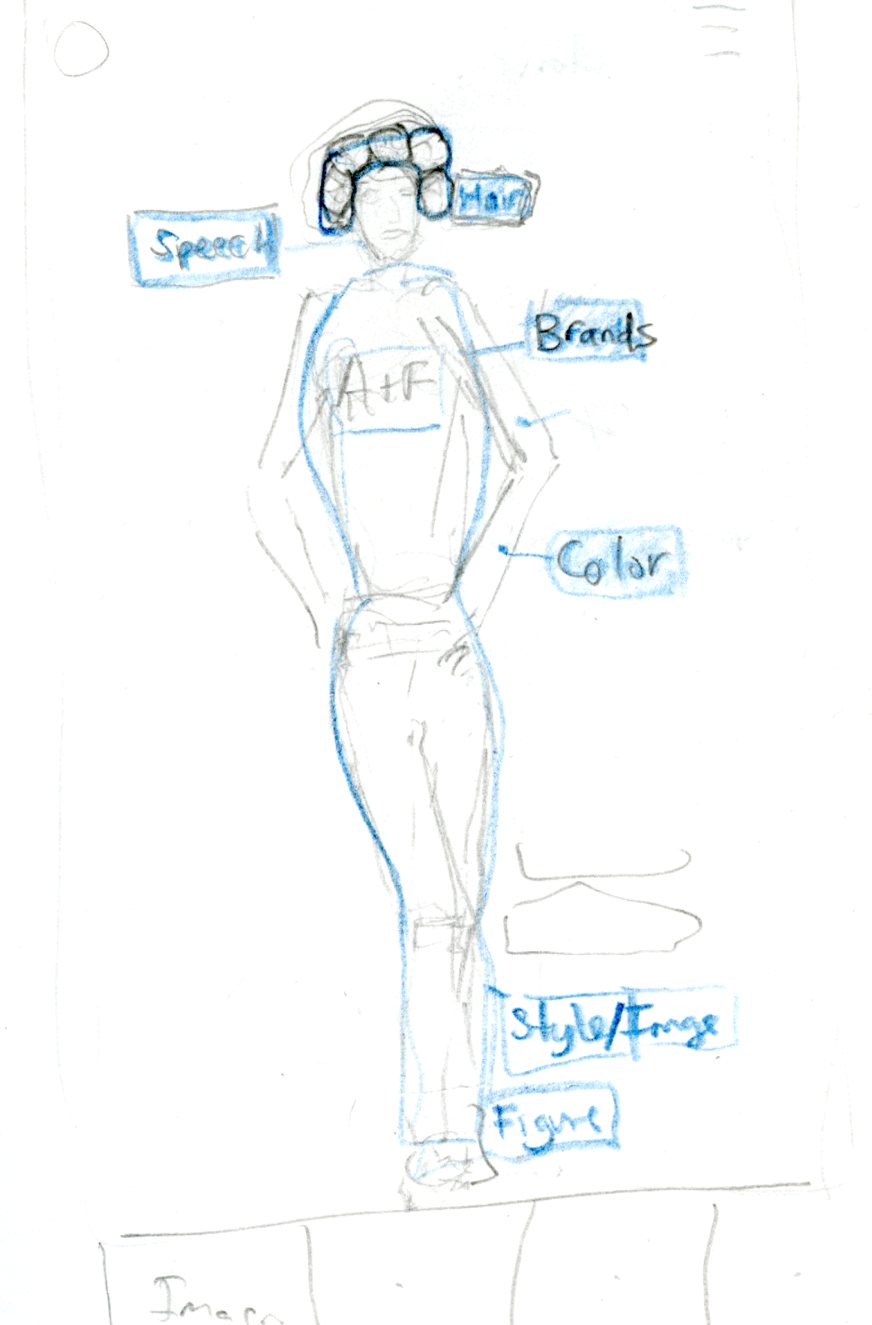 Hair
Speech
Brands
A+F
Color
Style/Image
Figure